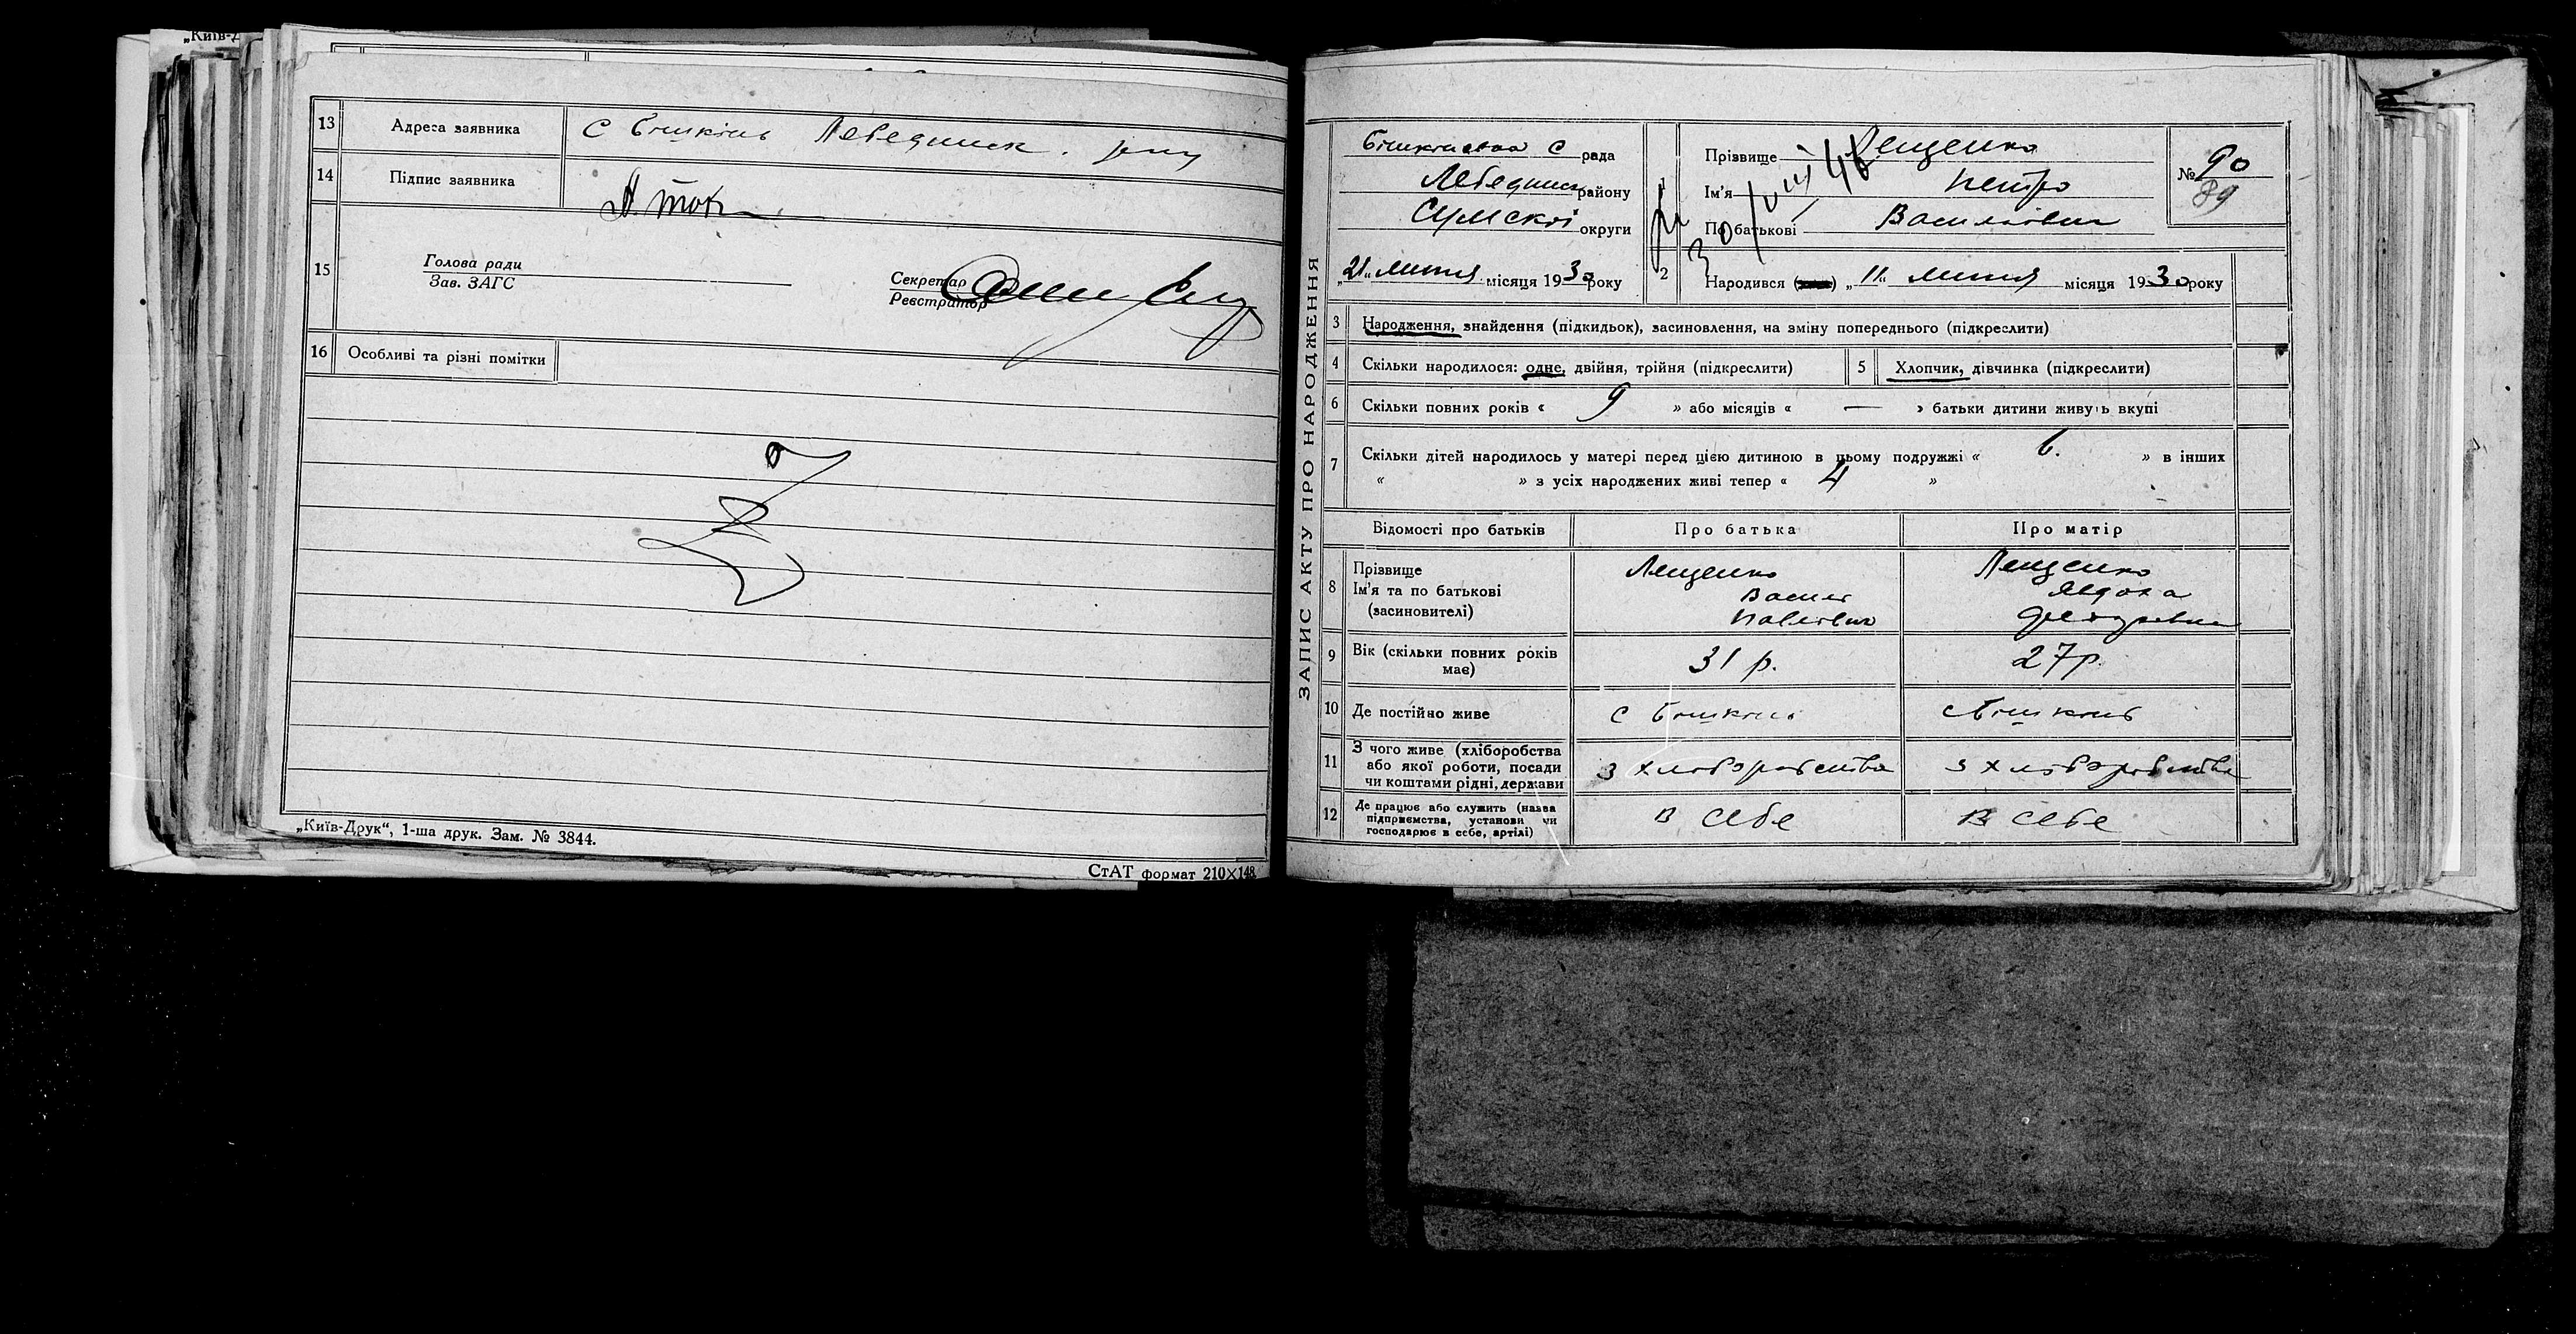 „Київ-Д
13 Адреса заявника С Бишкінь Лебединск. р-ну
14 Підпис заявника
15 Голова ради Секретар
Зав. ЗАГС Реєстратор
16 Особливі та різні помітки
„Київ-Друк“, 1-ша друк. Зам. № 3844.
СтАТ формат 210×148.
ЗАПИС АКТУ ПРО НАРОДЖЕННЯ
С рада
Лебединск району
Сумскої округи
„21“ липня місяця 1930 року
1 Прізвище Лещенко
Ім'я Петро
По батькові Васильович
№ 90
89
30/VIII 46
2 Народився „11“ липня місяця 1930 року
3 Народження, знайдення (підкидьок), засиновлення, на зміну попереднього (підкреслити)
4 Скільки народилося: одне, двійня, трійня (підкреслити) 5 Хлопчик, дівчинка (підкреслити)
6 Скільки повних років « 9 » або місяців « — » батьки дитини живуть вкупі
7 Скільки дітей народилось у матері перед цією дитиною в цьому подружжі « 6. » в інших
« » з усіх народжених живі тепер « 4 »
Відомості про батьків Про батька Про матір
8 Прізвище Лещенко Лещенко
Ім'я та по батькові Василь Явдоха
(засновителі) Павлович
9 Вік (скільки повних років має) 31 р. 27 р.
10 Де постійно живе С Бишкінь С Бишкінь
11 З чого живе (хліборобства або якої роботи, посади чи коштами рідні, держави З хліборобства З хліборобства
12 Де працює або служить (назва підприємства, установи чи господарює в себе, артілі) В себе В себе